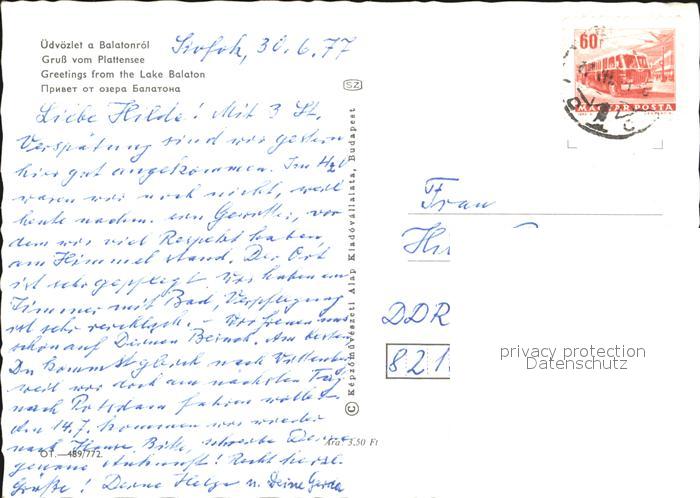 Üdvözlet a Balatonról
Gruß vom Plattensee
Greetings from the Lake Balaton
Привет от озера Балатона
Siofok, 30.6.77
Liebe Hilde! Mit 3 St.
Verspätung sind wir gestern
hier gut angekommen. Im H₂O
waren wir noch nicht, weil
heute nachm. ein Gewitter, vor
dem wir viel Respekt haben,
am Himmel stand. Der Ort
ist sehr gepflegt. Wir haben ein
Zimmer mit Bad, Verpflegung
ist sehr reichlich. – Wir freuen uns
schon auf Deinen Besuch. Am besten
Du kommst gleich nach
weil wir doch am nächsten Tag
nach Potsdam fahren wollten.
Am 14.7. kommen wir wieder
nach Hause. Bitte, schreibe Deine
genaue Ankunft! Recht herzl.
Grüße! Deine Helga u. Deine Gerda
OT.—489/772
Ára: 3,50 Ft
SZ
© Képzőművészeti Alap Kiadóvállalata, Budapest
60f
MAGYAR POSTA
Frau
DDR
821
privacy protection
Datenschutz